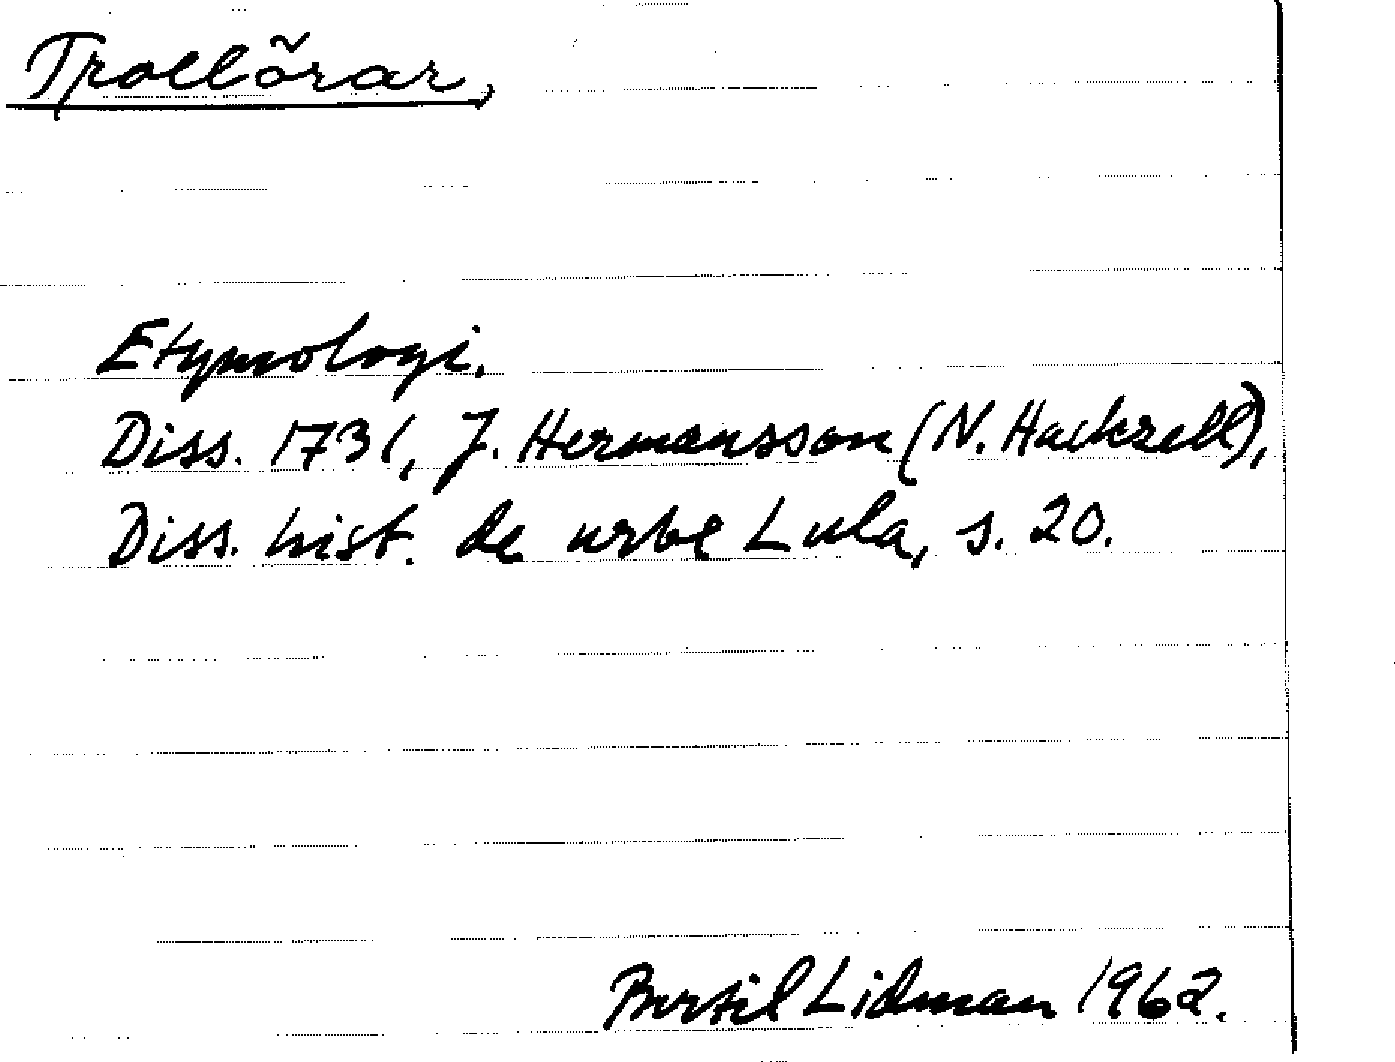 Trollörar,
Etymologi.
Diss. 1731, J. Hermansson (N. Hackzell),
Diss. hist. de urbe Lula, s. 20.
Bertil Lidman 1962.